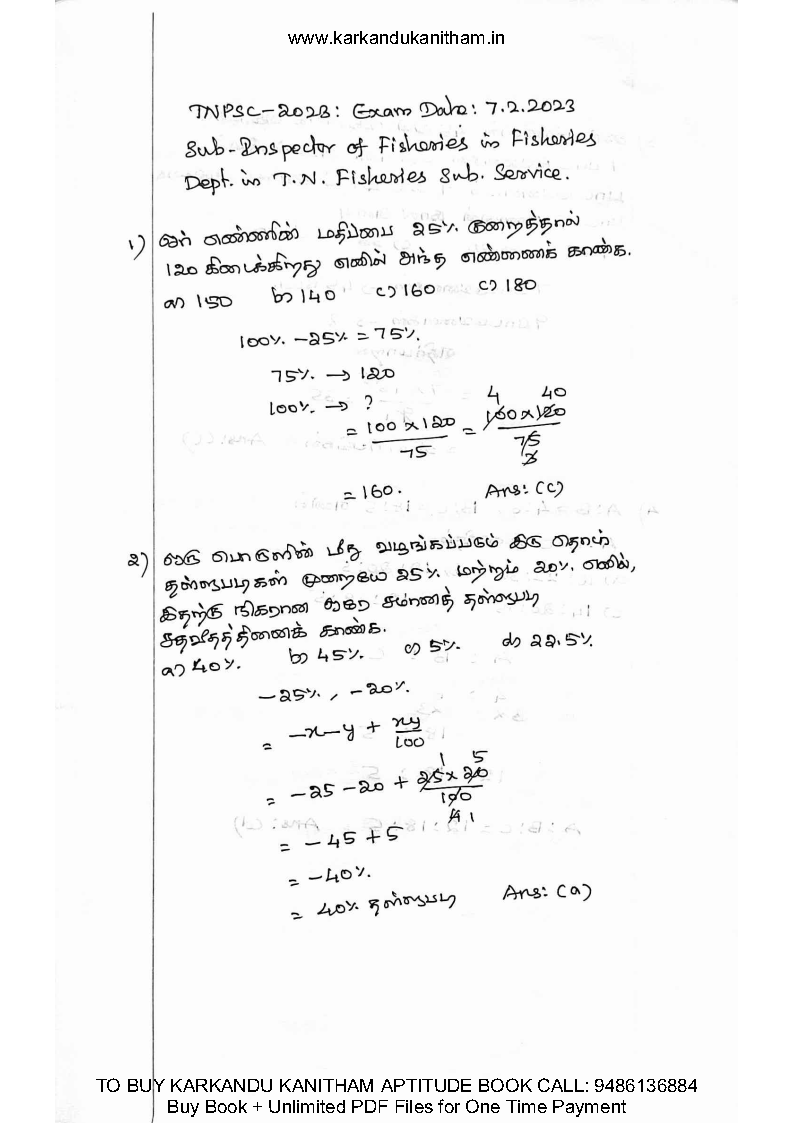 www.karkandukanitham.in
TNPSC-2023: Exam Date: 7.2.2023
Sub-Inspector of Fisheries in Fisheries
Dept. in T.N. Fisheries Sub. Service.
1) ஓர் எண்ணின் மதிப்பை 25% குறைத்தால்
120 கிடைக்கிறது எனில் அந்த எண்ணைக் காண்க.
a) 150 b) 140 c) 160 c) 180
100% - 25% = 75%.
75% → 120
100% → ?
4 40
= 100 x 120 / 75 = 100 x 120 / 75
3
= 160. Ans: (c)
2) ஒரு பொருளின் மீது வழங்கப்படும் இரு தொடர்
தள்ளுபடிகள் முறையே 25% மற்றும் 20% எனில்,
இதற்கு நிகரான ஒரே சமானத் தள்ளுபடி
சதவீதத்தினைக் காண்க.
a) 40%. b) 45%. c) 5%. d) 22.5%
-25%, -20%.
= -x-y + xy/100
1 5
= -25 - 20 + 25 x 20 / 100
4 1
= -45 + 5
= -40%.
= 40% தள்ளுபடி Ans: (a)
TO BUY KARKANDU KANITHAM APTITUDE BOOK CALL: 9486136884
Buy Book + Unlimited PDF Files for One Time Payment